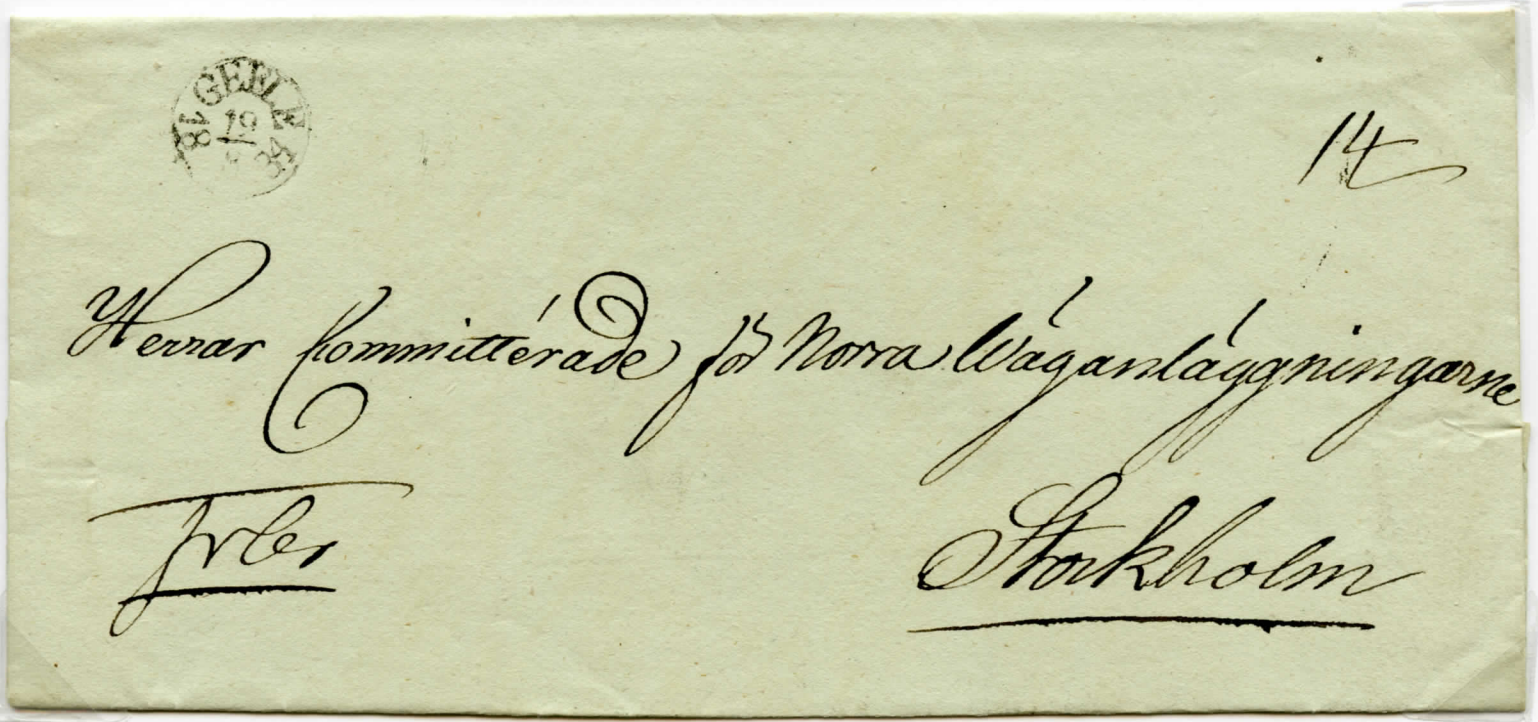 GEFLE
19
18
14
Herrar Committérade för Norra Wäganläggningarne
frbr
Stockholm